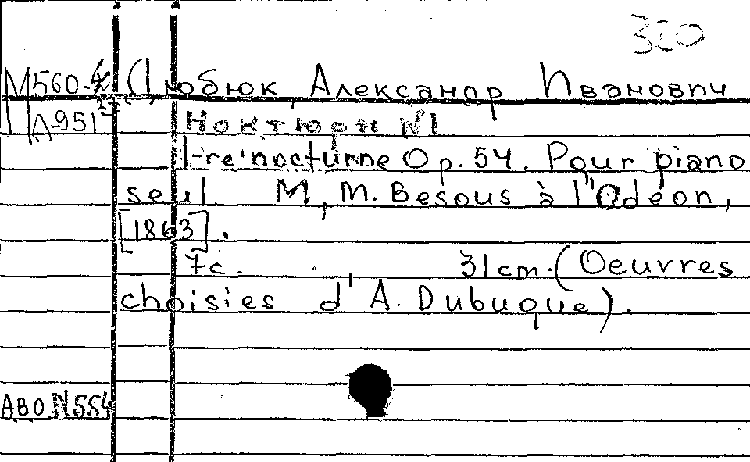 320
М560-4 Дюбюк, Александр Иванович
Д-951 Ноктюрн №1
1-re nocturne Op. 54. Pour piano
seul M, M. Besous à l'Odéon,
[1863].
7с. 31cm. (Oeuvres
choisies d'A. Dubuque).
АВО N554